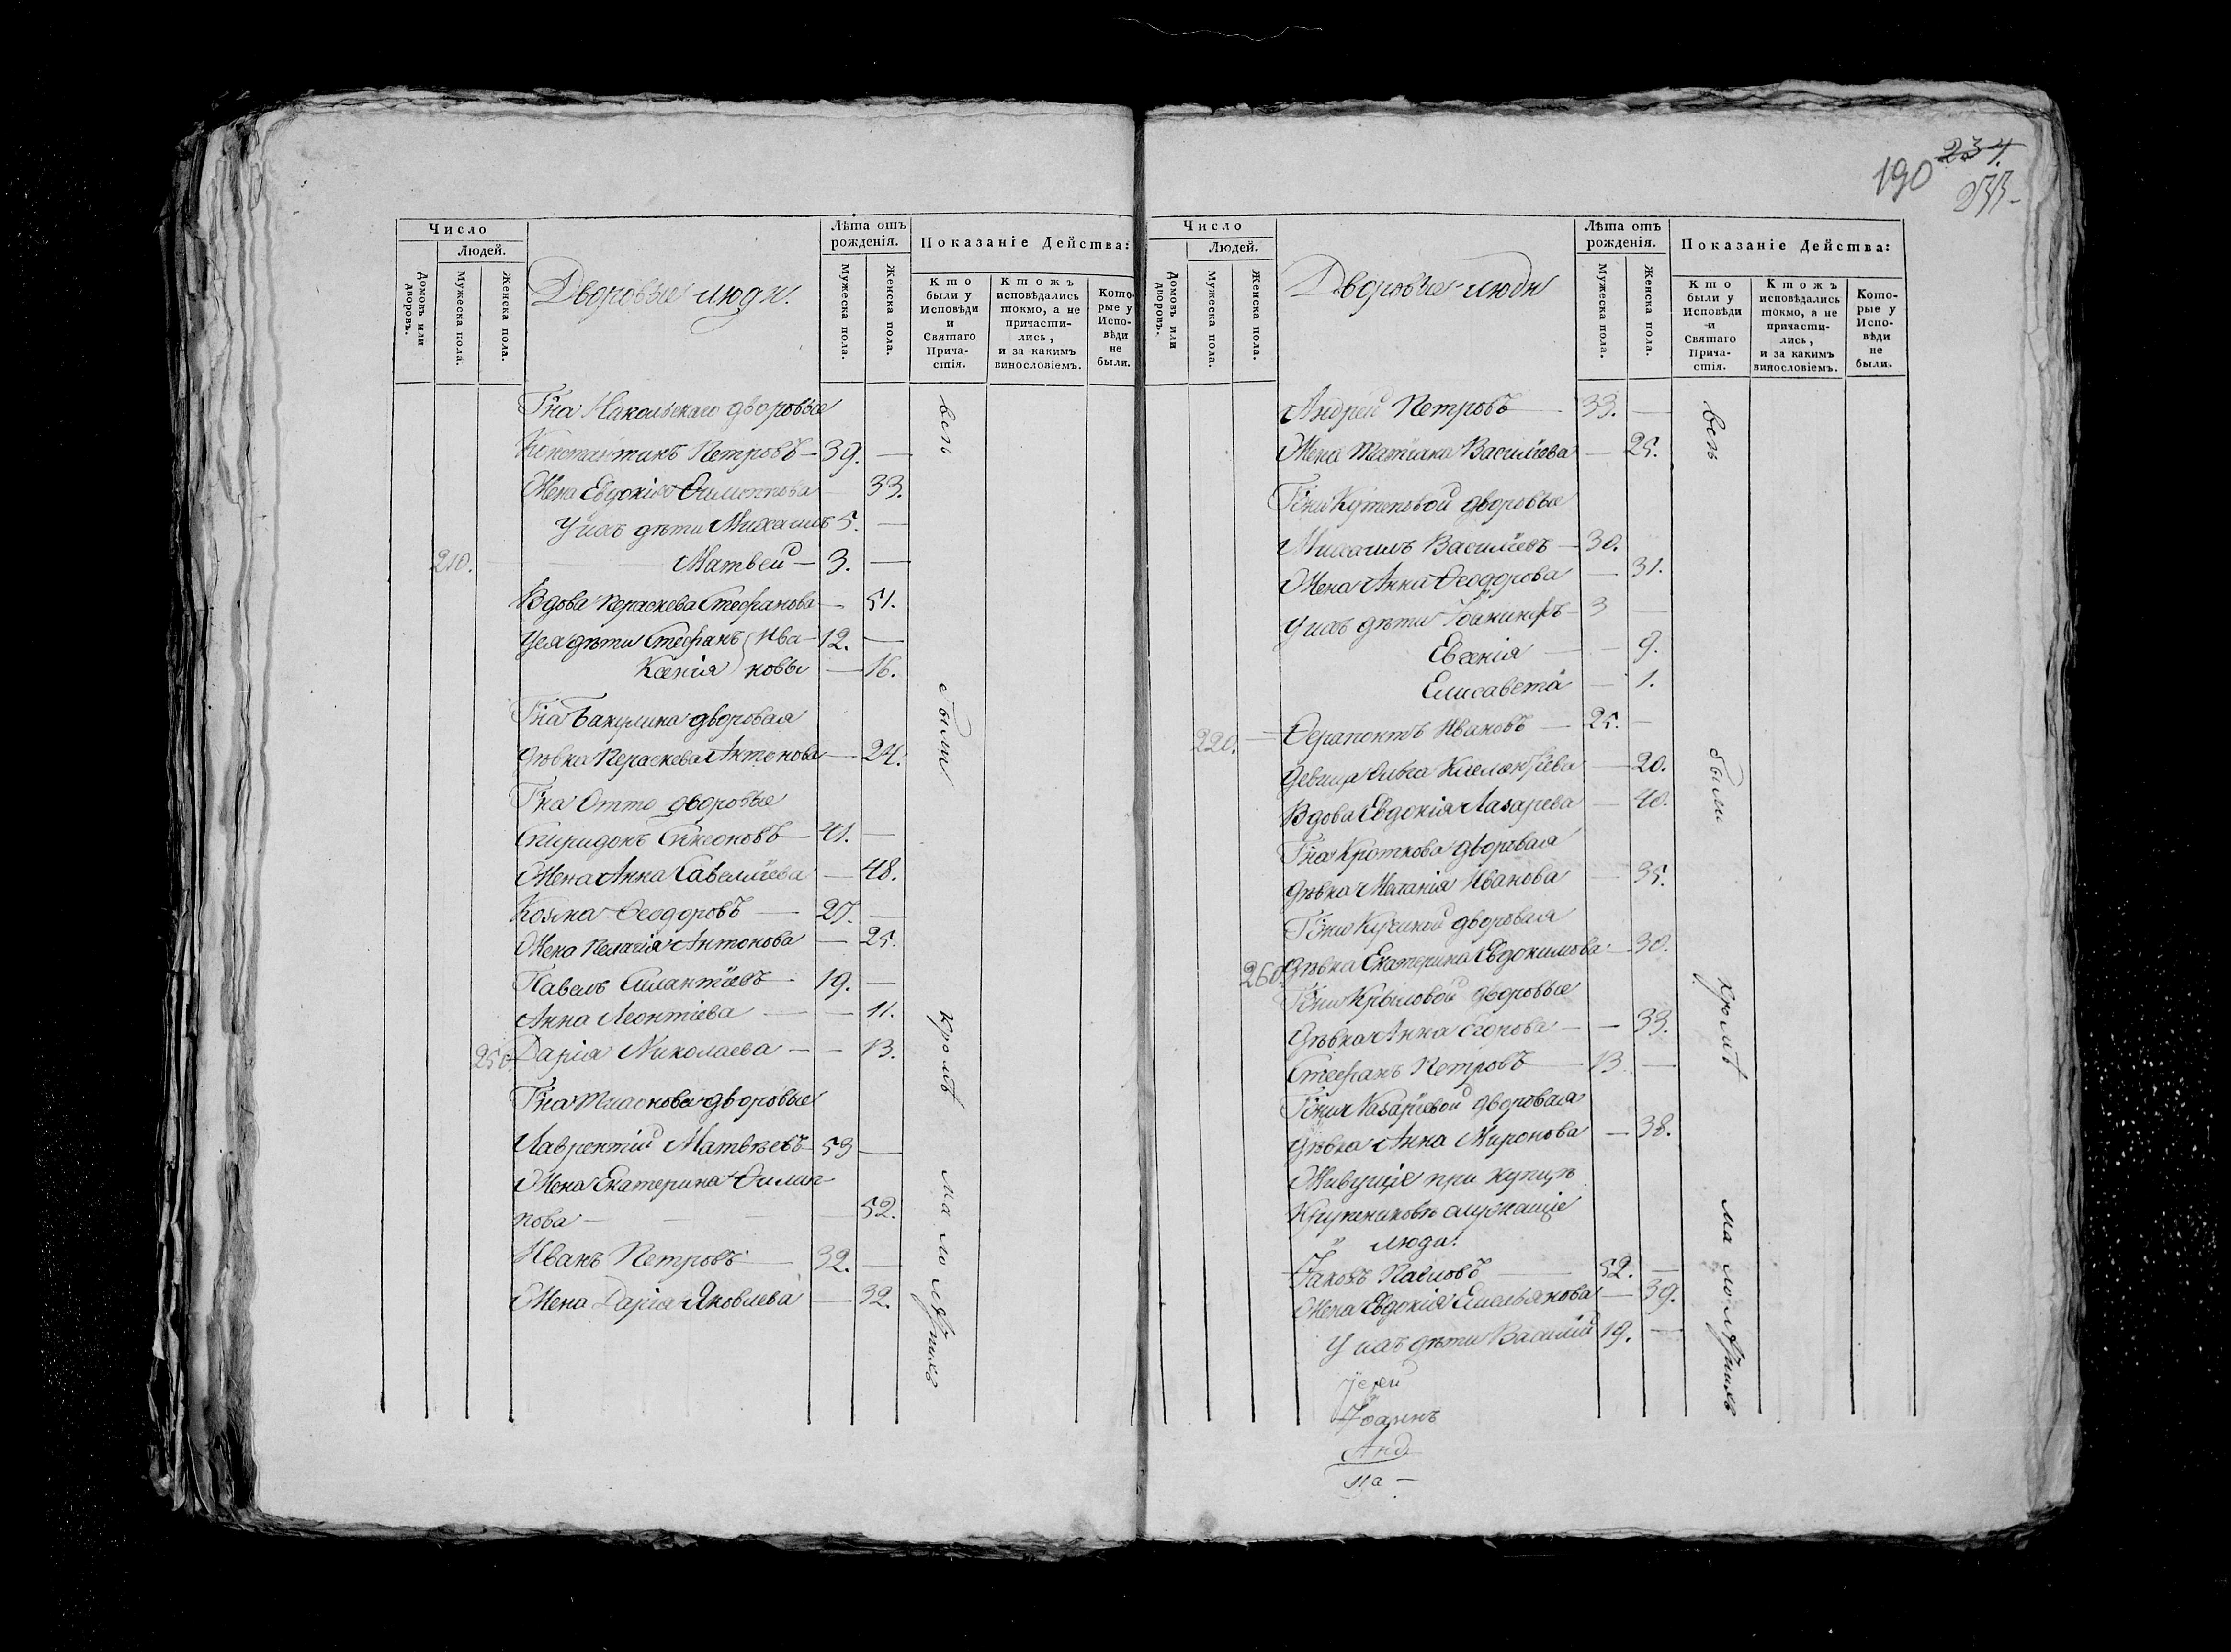 Число
Людей.
Домовъ или дворовъ.
Мужеска пола.
Женска пола.
Дворовые люди.
Лѣта отъ рожденія.
Мужеска пола.
Женска пола.
Показаніе Действа:
Кто были у Исповѣди и Святаго Прича-стія.
Ктожъ исповѣдались токмо, а не причасти-лись, и за какимъ винословіемъ.
Кото-рые у Испо-вѣди не были.
Гна дворовые
Константинъ Петровъ — 39. —
Жена Евдокія — 33.
У ихъ дѣти Михаилъ 5. —
210. Матвей — 3. —
Вдова Параскева Стефанова — 51.
Уея дѣти Стефанъ Ива- 12. —
Ксенія новы — 16.
Гна Бакулина дворовая
дѣвка Параскева Антонова — 24.
Гна Отто дворовые
Спиридонъ Симеоновъ — 41. —
Жена Анна Савеліева — 48.
Козма Феодоровъ — 27. —
Жена Пелагія Антонова — 25.
Павелъ Силантіевъ 19. —
Анна Леонтіева — — 11.
250. Дарія Николаева — — 13.
Гна дворовые
Лаврентій Матвѣевъ 53 —
Жена Екатерина Филип-
пова — 52.
Иванъ Петровъ — 32. —
Жена Дарія Яковлева — 32.
всѣ
были
кромѣ
малолѣтнихъ
190 234.
233-
Число
Людей.
Домовъ или дворовъ.
Мужеска пола.
Женска пола.
Дворовые люди
Лѣта отъ рожденія.
Мужеска пола.
Женска пола.
Показаніе Действа:
Кто были у Исповѣди и Святаго Прича-стія.
Ктожъ исповѣдались токмо, а не причасти-лись, и за какимъ винословіемъ.
Кото-рые у Испо-вѣди не были.
Андрей Петровъ — 33. —
Жена Татіана Василіева — 25.
Гжи Кутеповой дворовые
Михаилъ Василіевъ — 30.
Жена Анна Феодорова — 31.
У ихъ дѣти 3 —
Евгенія — — 9.
Елисавета — 1.
220. — Ферапонтъ Ивановъ — 25. —
девица Ольга — 20.
Вдова Евдокія Лазарева — 40.
Гна Кроткова дворовая
дѣвка Меланія Иванова — 35.
Гжи дворовая
260. дѣвка Екатерина Евдокимова — 30.
Гжи Крыловой дворовые
дѣвка Анна — — 33.
Стефанъ Петровъ — 13 —
Гжи Назаріевой дворовая
дѣвка Анна Миронова — 38.
Живущіе при купцѣ
Крупениковѣ служащіе
люди.
Іаковъ Павловъ — 52. —
Жена Евдокія Емельянова — 39.
У ихъ дѣти Василій 19. —
Іерей
Іоаннъ
Анд
на —
всѣ
были
кромѣ
малолѣтнихъ